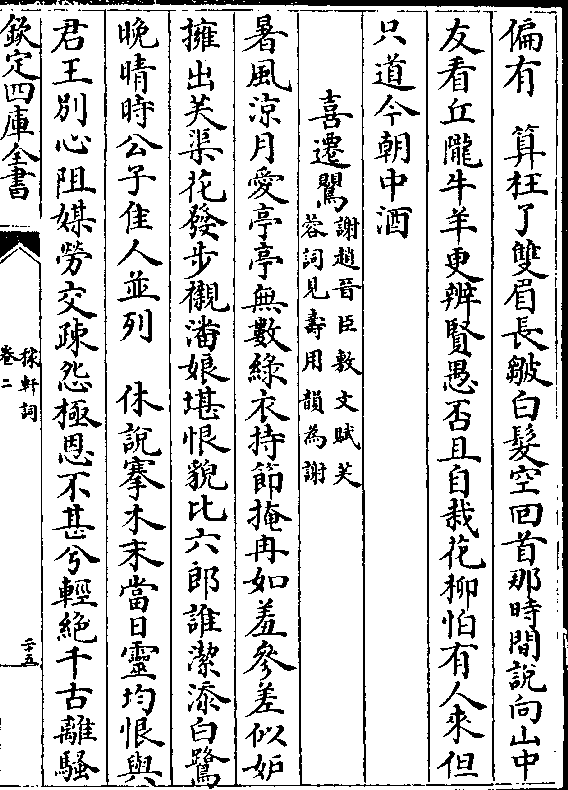 偏有　算枉了雙眉長皺白髮空回首那時間說向山中
友看丘隴牛羊更辨賢愚否且自栽花柳怕有人來但
只道今朝中酒
喜遷鶯
謝趙晉臣敷文賦芙
蓉詞見壽用韻為謝
暑風涼月愛亭亭無數綠衣持節掩冉如羞參差似妒
擁出芙渠花發步襯潘娘堪恨貌比六郎誰潔添白鷺
晚晴時公子佳人並列　休說搴木末當日靈均恨與
君王別心阻媒勞交疎怨極恩不甚兮輕絶千古離騷
欽定四庫全書
稼軒詞
卷二
二十五